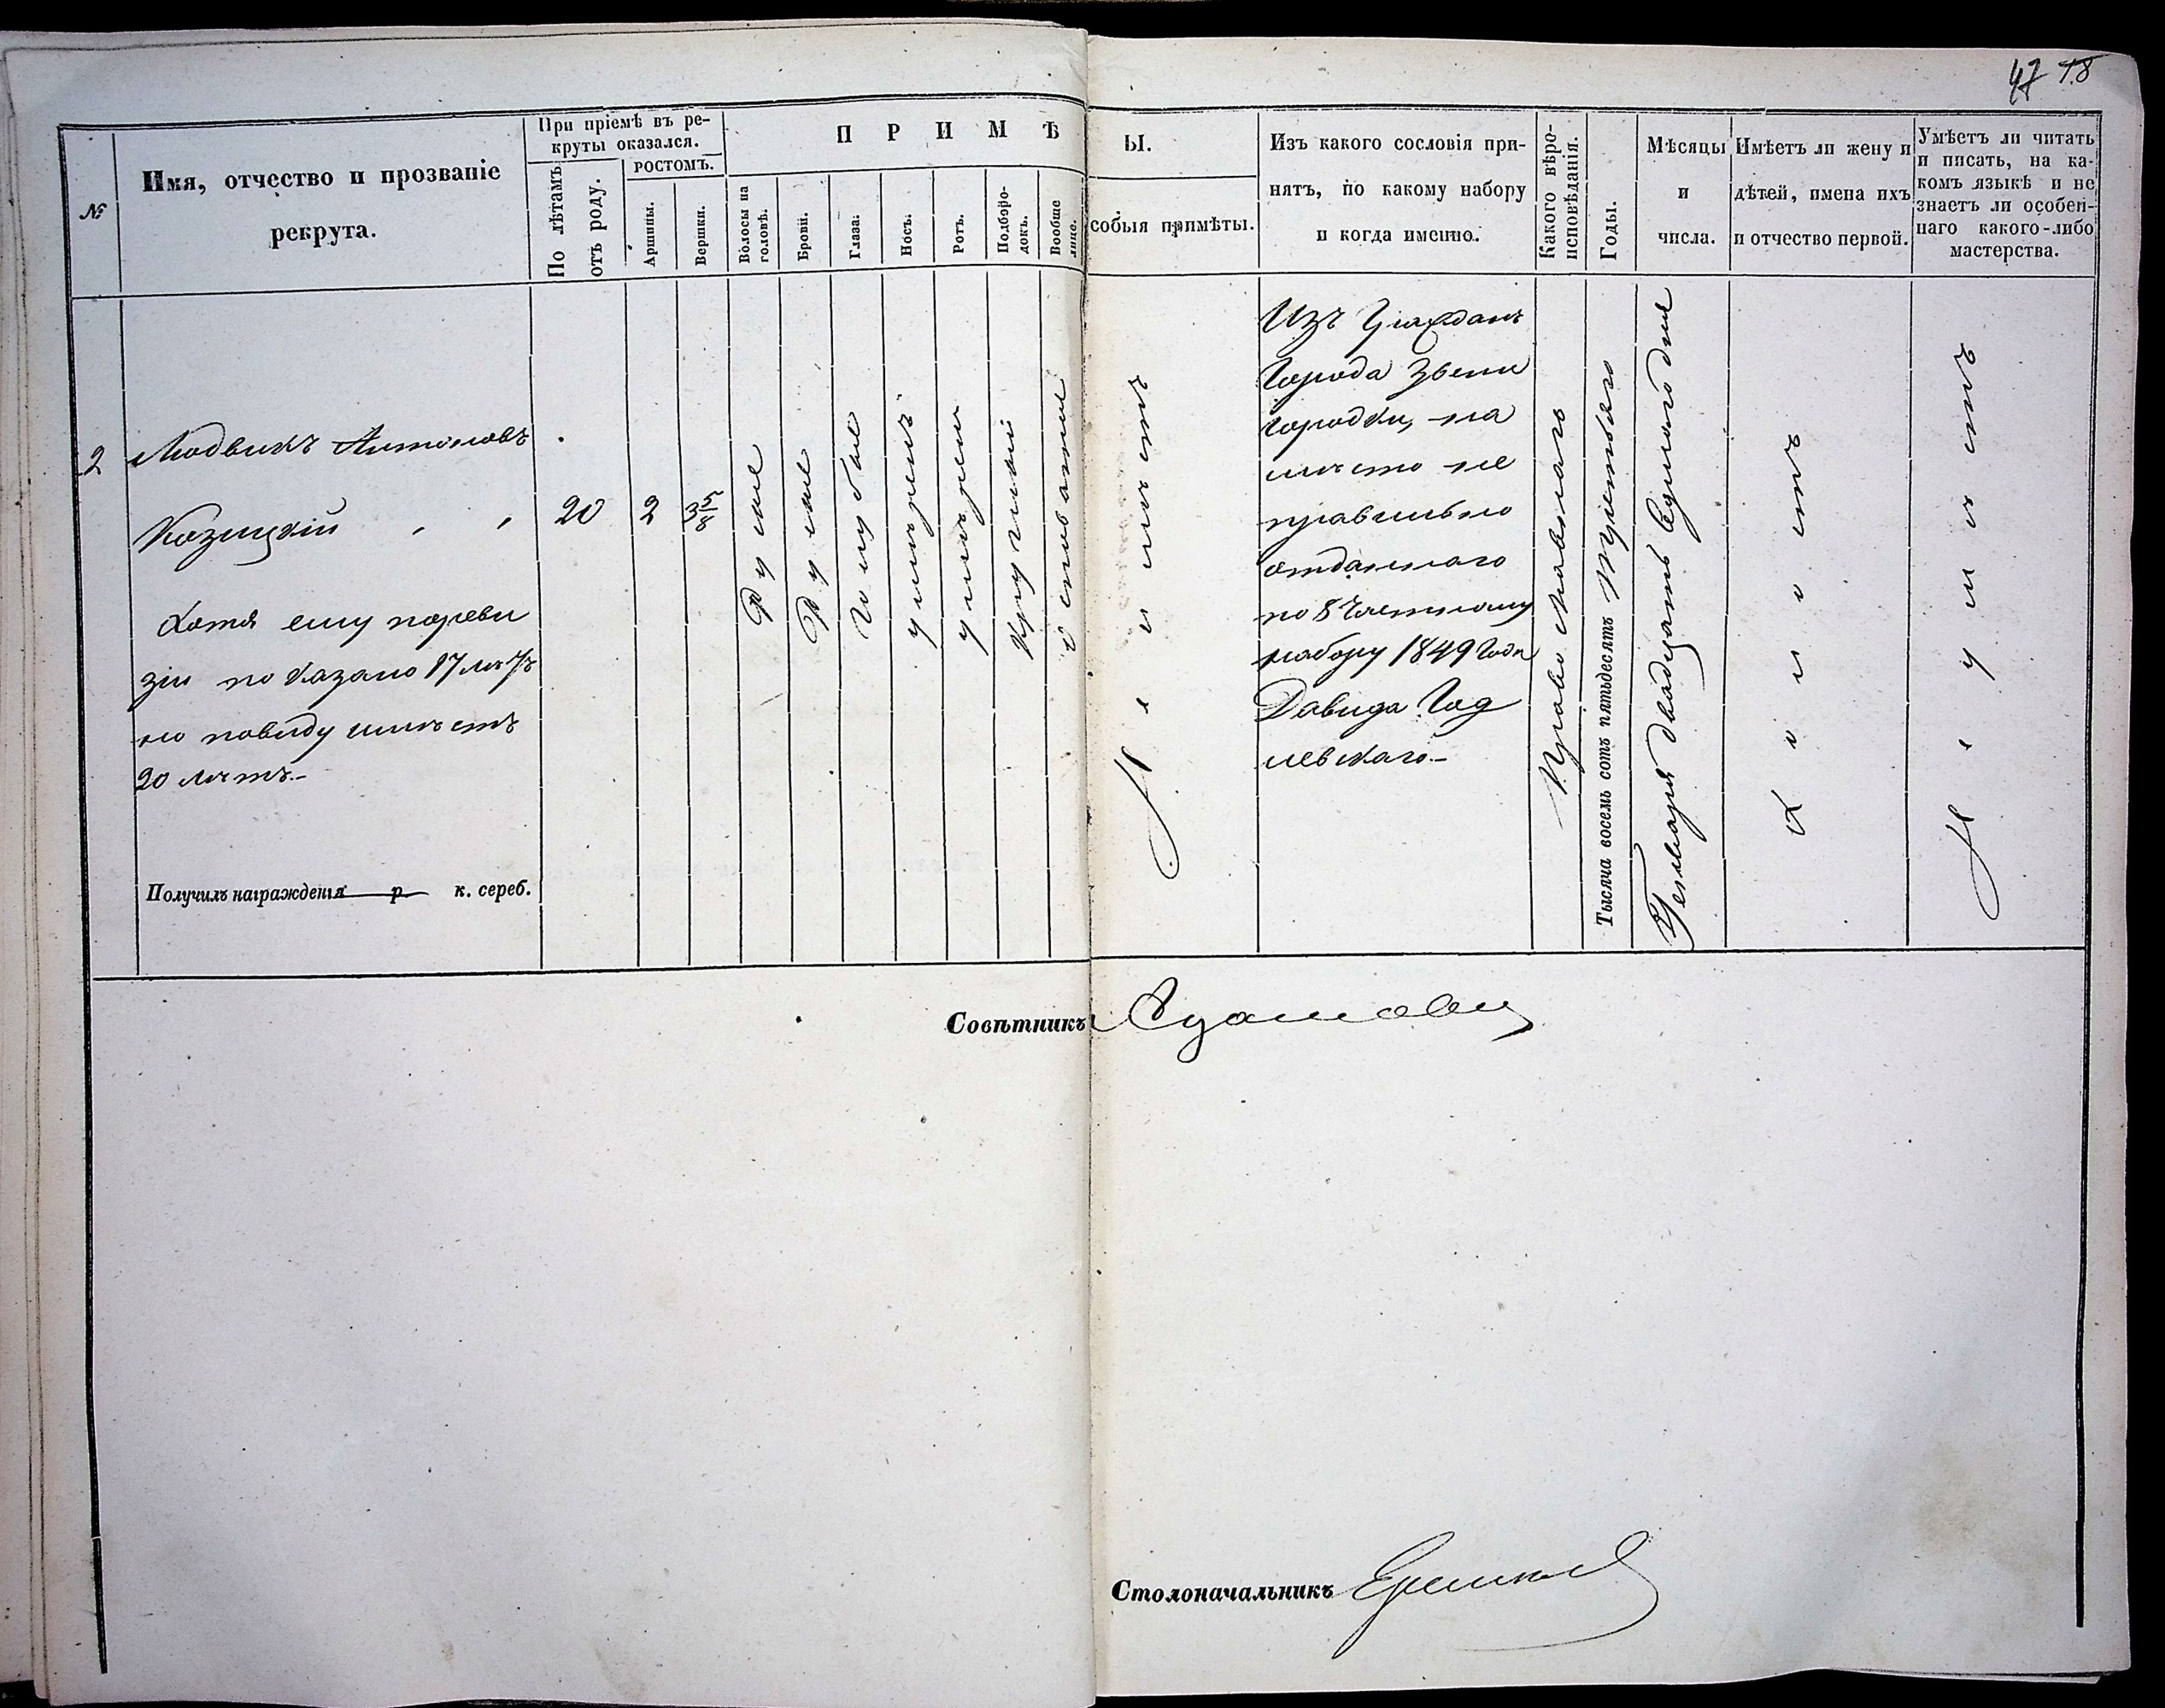 47 18
№
Имя, отчество и прозваніе
рекрута.
При пріемѣ въ ре-
круты оказался.
По лѣтамъ
отъ роду.
РОСТОМЪ.
Аршины.
Вершки.
П Р И М Ѣ
Волосы на
головѣ.
Брови.
Глаза.
Носъ.
Ротъ.
Подборо-
докъ.
Вообще
лице.
Ы.
собыя примѣты.
Изъ какого сословія при-
нятъ, по какому набору
и когда именно.
Какого вѣро-
исповѣданія.
Годы.
Мѣсяцы
и
числа.
Имѣетъ ли жену и
дѣтей, имена ихъ
и отчество первой.
Умѣетъ ли читать
и писать, на ка-
комъ языкѣ и не
знаетъ ли особен-
наго какого-либо
мастерства.
2
Людвикъ Антоновъ
Козицкій
Хотя ему по реви
зіи показано 17 лѣтъ
но повиду имѣетъ
20 лѣтъ.-
Получилъ награжденія р. к. сереб.
20
2
3 5/8
Русые
Русые
Голубые
умѣрень
умѣрень
Круглый
Неимѣетъ
Изъ Гражданъ
Города Звени
городки, на
мѣсто не
правильно
отданнаго
по 8 Частному
набору 1849 Года
Давида Год
левскаго.-
Православнаго
Тысяча восемь сотъ пятьдесятъ Третьяго
Генваря двадцать Седьмого дня
Холостъ
Неумѣетъ
Совѣтникъ
Столоначальникъ